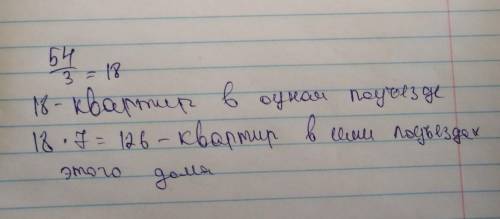 54/3 = 18
18 - квартир в одном подъезде
18 · 7 = 126 - квартир в семи подъездах
этого дома